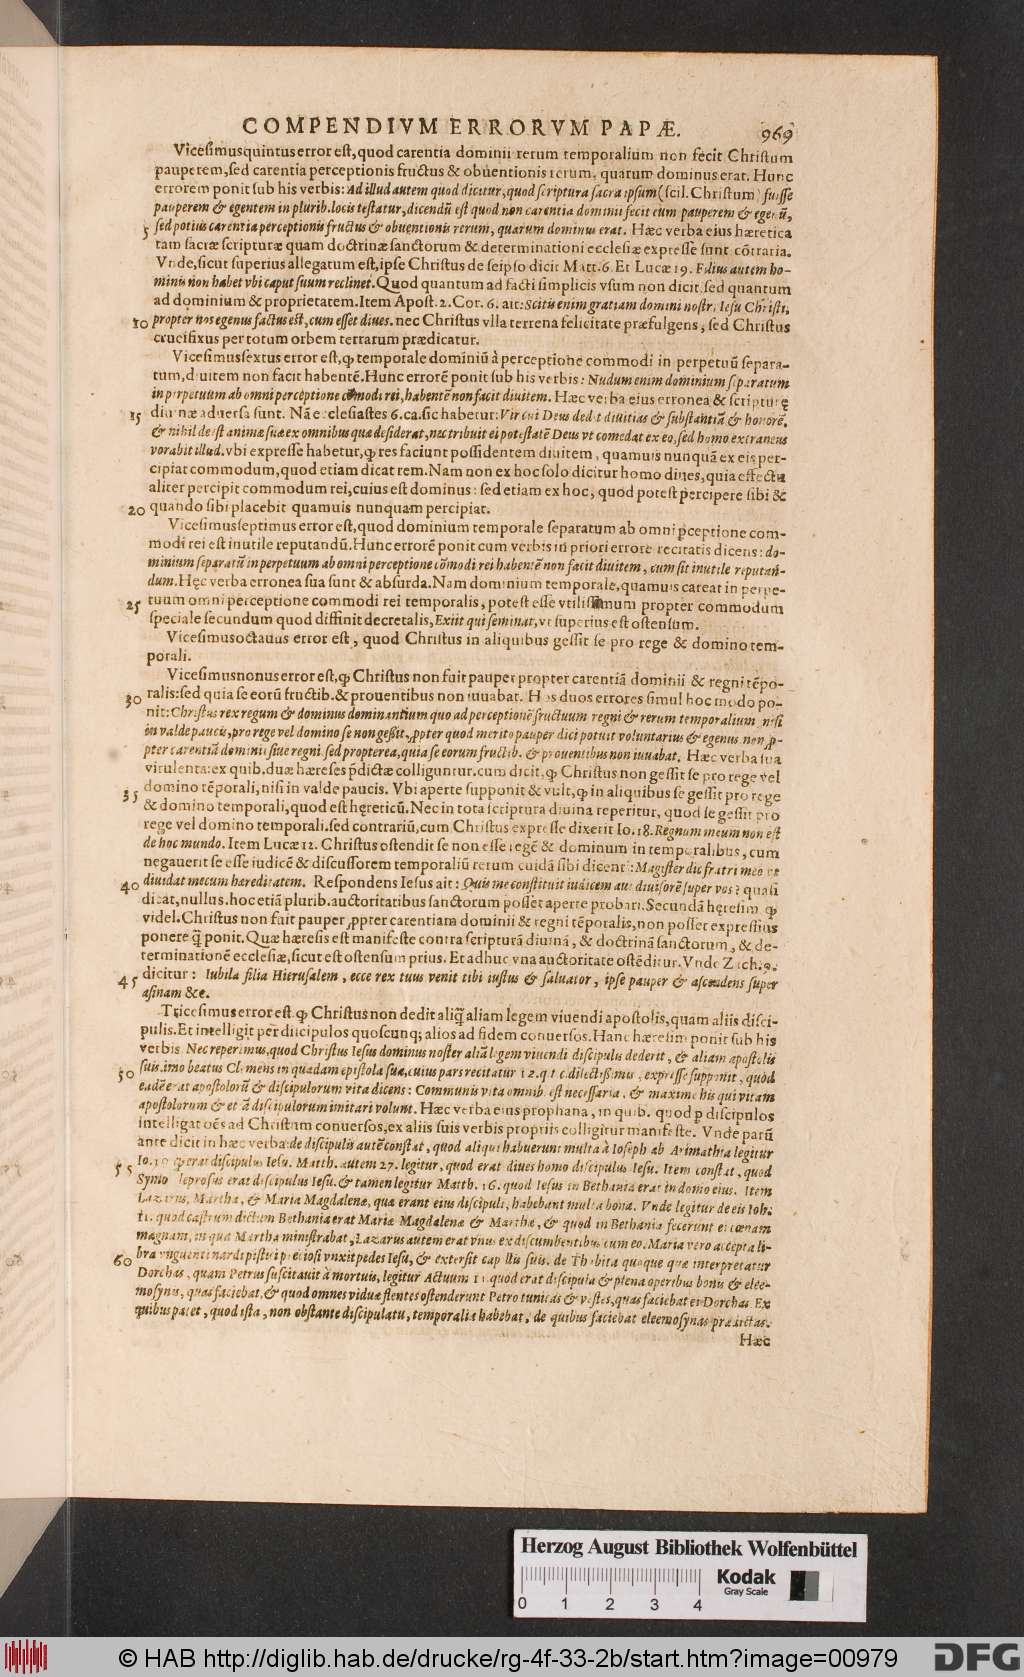 COMPENDIVM ERRORVM PAPÆ. 969
Vicesimusquintus error est, quod carentia dominii rerum temporalium non fecit Christum
pauperem, sed carentia perceptionis fructus & obuentionis rerum, quarum dominus erat. Hunc
errorem ponit sub his verbis: Ad illud autem quod dicitur, quod scriptura sacra ipsum (scil. Christum) fuisse
pauperem & egentem in plurib. locis testatur, dicendũ est quod non carentia dominii fecit eum pauperem & egenũ,
5 sed potius carentia perceptionis fructus & obuentionis rerum, quarum dominus erat. Hæc verba eius hæretica
tam sacræ scripturæ quam doctrinæ sanctorum & determinationi ecclesiæ expresse sunt cõtraria.
Vnde, sicut superius allegatum est, ipse Christus de seipso dicit Matt. 6. Et Lucæ 19. Filius autem ho-
minis non habet vbi caput suum reclinet. Quod quantum ad facti simplicis vsum non dicit, sed quantum
ad dominium & proprietatem. Item Apost. 2. Cor. 6. ait: Scitis enim gratiam domini nostri Iesu Christi,
10 propter nos egenus factus est, cum esset diues. nec Christus vlla terrena felicitate præfulgens, sed Christus
crucifixus per totum orbem terrarum prædicatur.
Vicesimussextus error est, ꝙ temporale dominiũ à perceptione commodi in perpetuũ separa-
tum, diuitem non facit habentẽ. Hunc errorẽ ponit sub his verbis: Nudum enim dominium separatum
in perpetuum ab omni perceptione commodi rei, habentẽ non facit diuitem. Hæc verba eius erronea & scripturę
15 diuinæ aduersa sunt. Nã ecclesiastes 6. ca. sic habetur: Vir cui Deus dedit diuitias & substantiã & honorẽ,
& nihil deest animæ suæ ex omnibus quæ desiderat, nec tribuit ei potestatẽ Deus vt comedat ex eo, sed homo extraneus
vorabit illud. vbi expresse habetur, ꝙ res faciunt possidentem diuitem, quamuis nunquã ex eis per-
cipiat commodum, quod etiam dicat rem. Nam non ex hoc solo dicitur homo diues, quia effectu
aliter percipit commodum rei, cuius est dominus: sed etiam ex hoc, quod potest percipere sibi &
20 quando sibi placebit quamuis nunquam percipiat.
Vicesimusseptimus error est, quod dominium temporale separatum ab omni ꝑceptione com-
modi rei est inutile reputandũ. Hunc errorẽ ponit cum verbis in priori errore recitatis dicens: do-
minium separatũ in perpetuum ab omni perceptione cõmodi rei habentẽ non facit diuitem, cum sit inutile reputan-
dum. Hęc verba erronea sua sunt & absurda. Nam dominium temporale, quamuis careat in perpe-
25 tuum omni perceptione commodi rei temporalis, potest esse vtilissimum propter commodum
speciale secundum quod diffinit decretalis, Exiit qui seminat, vt superius est ostensum.
Vicesimusoctauus error est, quod Christus in aliquibus gessit se pro rege & domino tem-
porali.
Vicesimusnonus error est, ꝙ Christus non fuit pauper propter carentiã dominii & regni tẽpo-
30 ralis: sed quia se eorũ fructib. & prouentibus non iuuabat. Hos duos errores simul hoc modo po-
nit: Christus rex regum & dominus dominantium quo ad perceptionẽ fructuum regni & rerum temporalium, nisi
in valde paucis, pro rege vel domino se non gessit, ꝓpter quod merito pauper dici potuit voluntarius & egenus non ꝓ-
pter carentiã dominii siue regni, sed propterea, quia se eorum fructib. & prouentibus non iuuabat. Hæc verba sua
virulenta: ex quib. duæ hæreses p̃dictæ colliguntur. cum dicit, ꝙ Christus non gessit se pro rege vel
35 domino tẽporali, nisi in valde paucis. Vbi aperte supponit & vult, ꝙ in aliquibus se gessit pro rege
& domino temporali, quod est hęreticũ. Nec in tota scriptura diuina reperitur, quod se gessit pro
rege vel domino temporali. sed contrariũ, cum Christus expresse dixerit Io. 18. Regnum meum non est
de hoc mundo. Item Lucæ 12. Christus ostendit se non esse regẽ & dominum in temporalibus, cum
negauerit se esse iudicẽ & discussorem temporaliũ rerum cuidã sibi dicenti: Magister dic fratri meo vt
40 diuidat mecum hæreditatem. Respondens Iesus ait: Quis me constituit iudicem aut diuisorẽ super vos? quasi
dicat, nullus. hoc etiã plurib. auctoritatibus sanctorum posset aperte probari. Secundã hęresim, ꝙ
videl. Christus non fuit pauper ꝓpter carentiam dominii & regni tẽporalis, non posset expressius
ponere q̃ ponit. Quæ hæresis est manifeste contra scripturã diuinã, & doctrinã sanctorum, & de-
terminationẽ ecclesiæ, sicut est ostensum prius. Et adhuc vna auctoritate ostẽditur. Vnde Zach. 9.
45 dicitur: Iubila filia Hierusalem, ecce rex tuus venit tibi iustus & saluator, ipse pauper & ascendens super
asinam &c.
Tricesimus error est. ꝙ Christus non dedit aliq̃ aliam legem viuendi apostolis, quam aliis disci-
pulis. Et intelligit per discipulos quoscunq; alios ad fidem conuersos. Hanc hæresim ponit sub his
verbis. Nec reperimus, quod Christus Iesus dominus noster aliã legem viuendi discipulis dederit, & aliam apostolis
50 suis. imo beatus Clemens in quadam epistola sua, cuius pars recitatur 12. q. 1. c. dilectissimis, expresse supponit, quod
eadẽ erat apostolorũ & discipulorum vita dicens: Communis vita omnib. est necessaria, & maxime his qui vitam
apostolorum & eorũ discipulorum imitari volunt. Hæc verba eius prophana, in quib. quod ꝑ discipulos
intelligat oẽs ad Christum conuersos, ex aliis suis verbis propriis colligitur manifeste. Vnde parũ
ante dicit in hæc verba: de discipulis autẽ constat, quod aliqui habuerunt multa à Ioseph ab Arimathia legitur
55 Io. 19. quod erat discipulus Iesu. Matth. autem 27. legitur, quod erat diues homo discipulus Iesu. Item constat, quod
Symon leprosus erat discipulus Iesu. & tamen legitur Matth. 26. quod Iesus in Bethania erat in domo eius. Item
Lazarus, Martha, & Maria Magdalena, qua erant eius discipuli, habebant multa bona. Vnde legitur de eis Ioh.
11. quod castrum dictum Bethania erat Mariæ Magdalenæ & Marthæ, & quod in Bethania fecerunt ei cœnam
magnam, in qua Martha ministrabat, Lazarus autem erat vnus ex discumbentibus cum eo. Maria vero accepta li-
60 bra vnguenti nardi pistici preciosi vnxit pedes Iesu, & extersit capillis suis. de Thabita quoque quæ interpretatur
Dorchas, quam Petrus suscitauit à mortuis, legitur Actuum quod erat discipula & plena operibus bonis & elee-
mosynis, quas faciebat, & quod omnes viduæ flentes ostenderunt Petro tunicas & vestes, quas faciebat eis Dorchas. Ex
quibus patet, quod ista, non obstante discipulatu, temporalia habebat, de quibus faciebat eleemosynas prædictas.
Hæc
Herzog August Bibliothek Wolfenbüttel
0 1 2 3 4
Kodak
Gray Scale
© HAB http://diglib.hab.de/drucke/rg-4f-33-2b/start.htm?image=00979
DFG